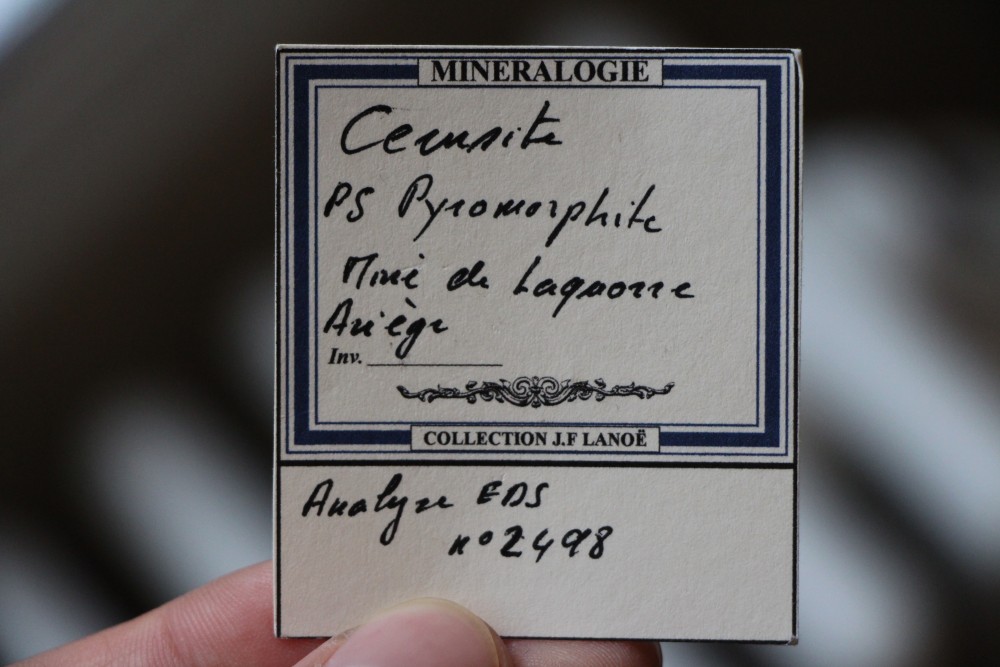 MINERALOGIE
Cerusite
PS Pyromorphite
Mine de Laquorre
Ariège
Inv.
COLLECTION J.F LANOË
Analyse EDS
n° 2498